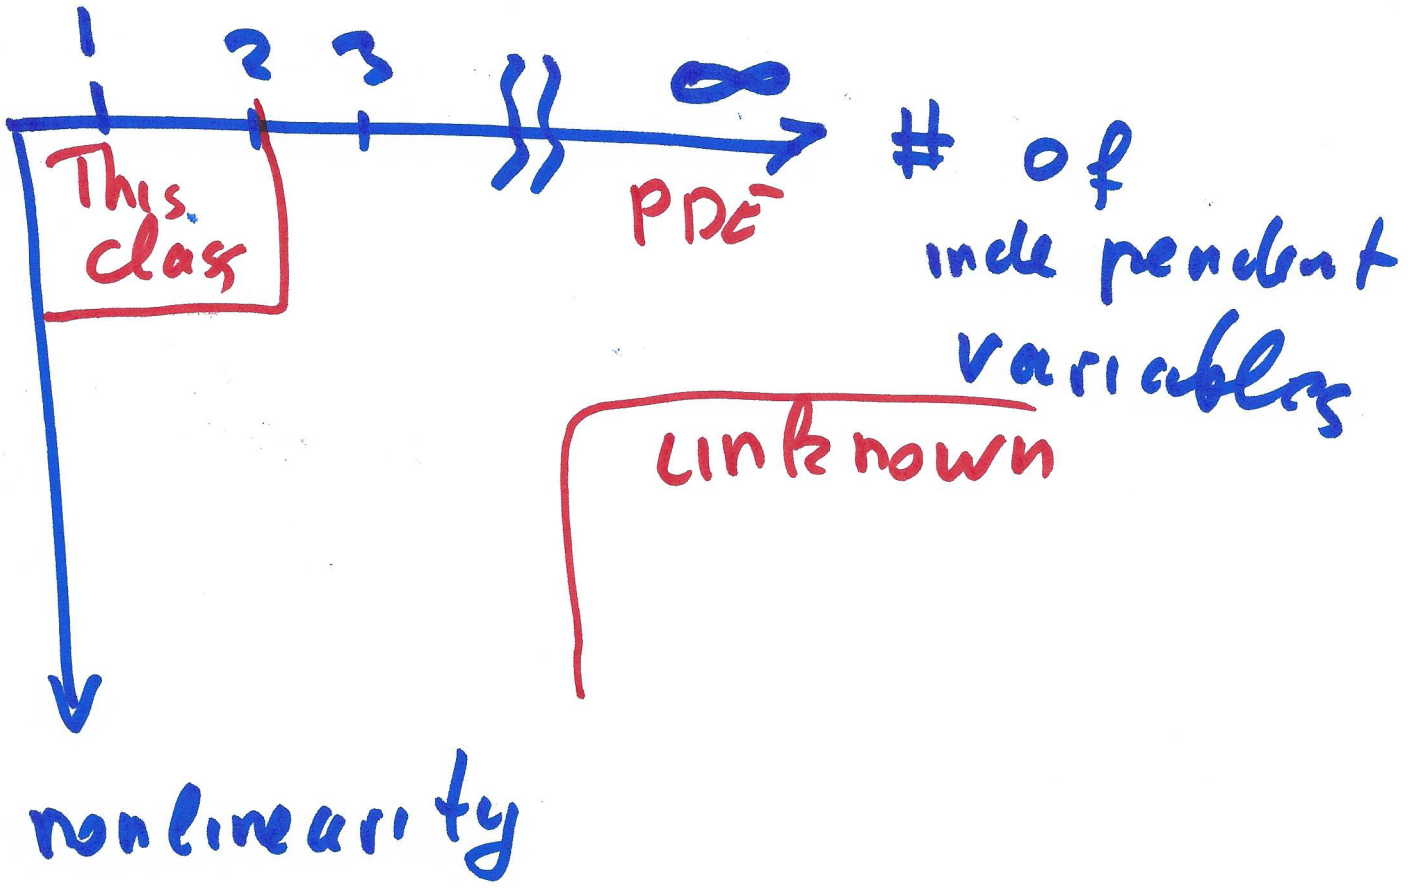 1 2 3 ∞
# of
independent
variables
This
class
PDE
unknown
nonlinearity